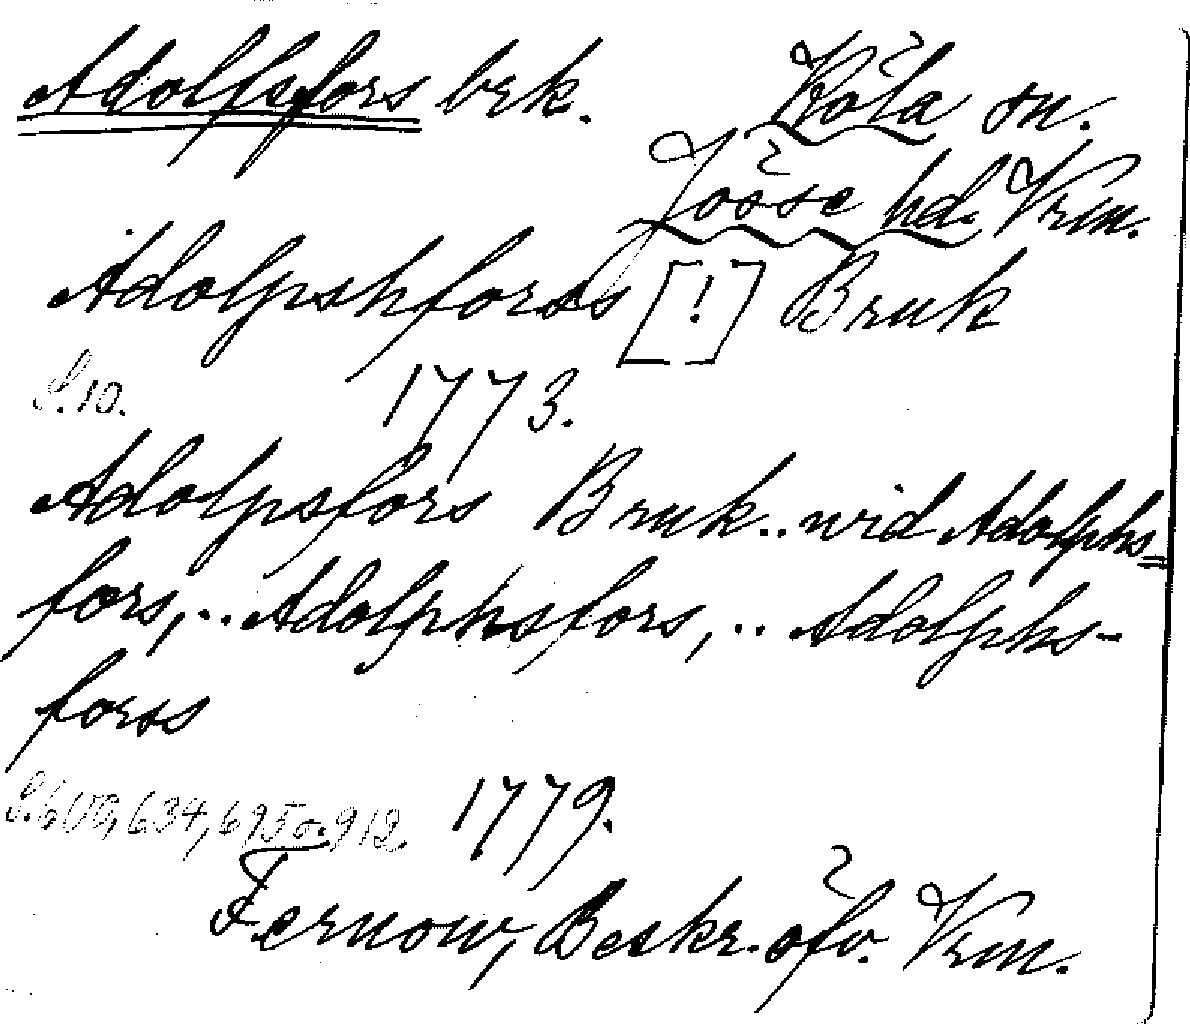 Adolfsfors brk. Köla sn.
Jösse hd. Vrm.
Adolpshforss [!] Bruk
S. 10. 1773.
Adolpsfors Bruk .. wid Adolphs=
fors, .. Adolphsfors, .. Adolphs-
forss
S. 609, 634, 695 o. 912. 1779.
Fernow, Beskr. öfv. Vrm.